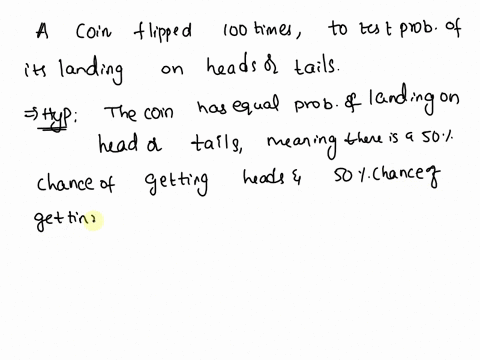 A coin flipped 100 times, to test prob. of
its landing on heads & tails.
⇒ Hyp: The coin has equal prob. of landing on
head & tails, meaning there is a 50%
chance of getting heads & 50% chance of
gettin